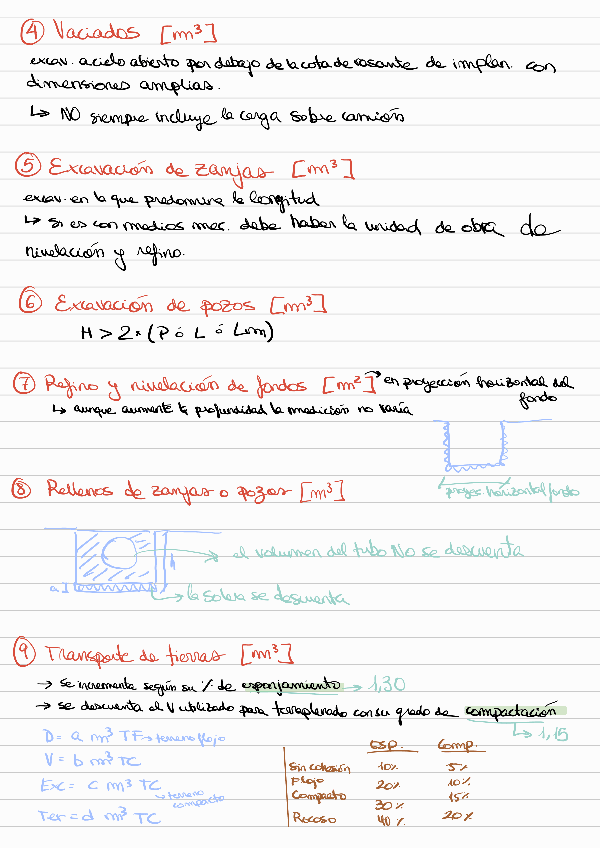 ④ Vaciados [m³]
excav. a cielo abierto por debajo de la cota de rasante de implan. con
dimensiones amplias.
↳ NO siempre incluye la carga sobre camión
⑤ Excavación de zanjas [m³]
excav. en la que predomina la longitud
↳ si es con medios mec. debe haber la unidad de obra de
nivelación y refino.
⑥ Excavación de pozos [m³]
H > 2 * (P ó L ó Lm)
⑦ Refino y nivelación de fondos [m²] → en proyección horizontal del
fondo
↳ aunque aumente la profundidad la medición no varía
proyec. horizontal fondo
⑧ Rellenos de zanjas o pozos [m³]
→ el volumen del tubo NO se descuenta
h
a
→ la solera se descuenta
⑨ Transporte de tierras [m³]
→ se incrementa según su % de esponjamiento → 1,30
→ se descuenta el V utilizado para terraplenado con su grado de compactación
↳ 1,15
D = a m³ TF → terreno flojo
V = b m³ TC
Exc = c m³ TC
↳ terreno compacto
Ter = d m³ TC
esp. comp.
Sin cohesión 10% 5%
Flojo 20% 10%
Compacto 30% 15%
Rocoso 40% 20%